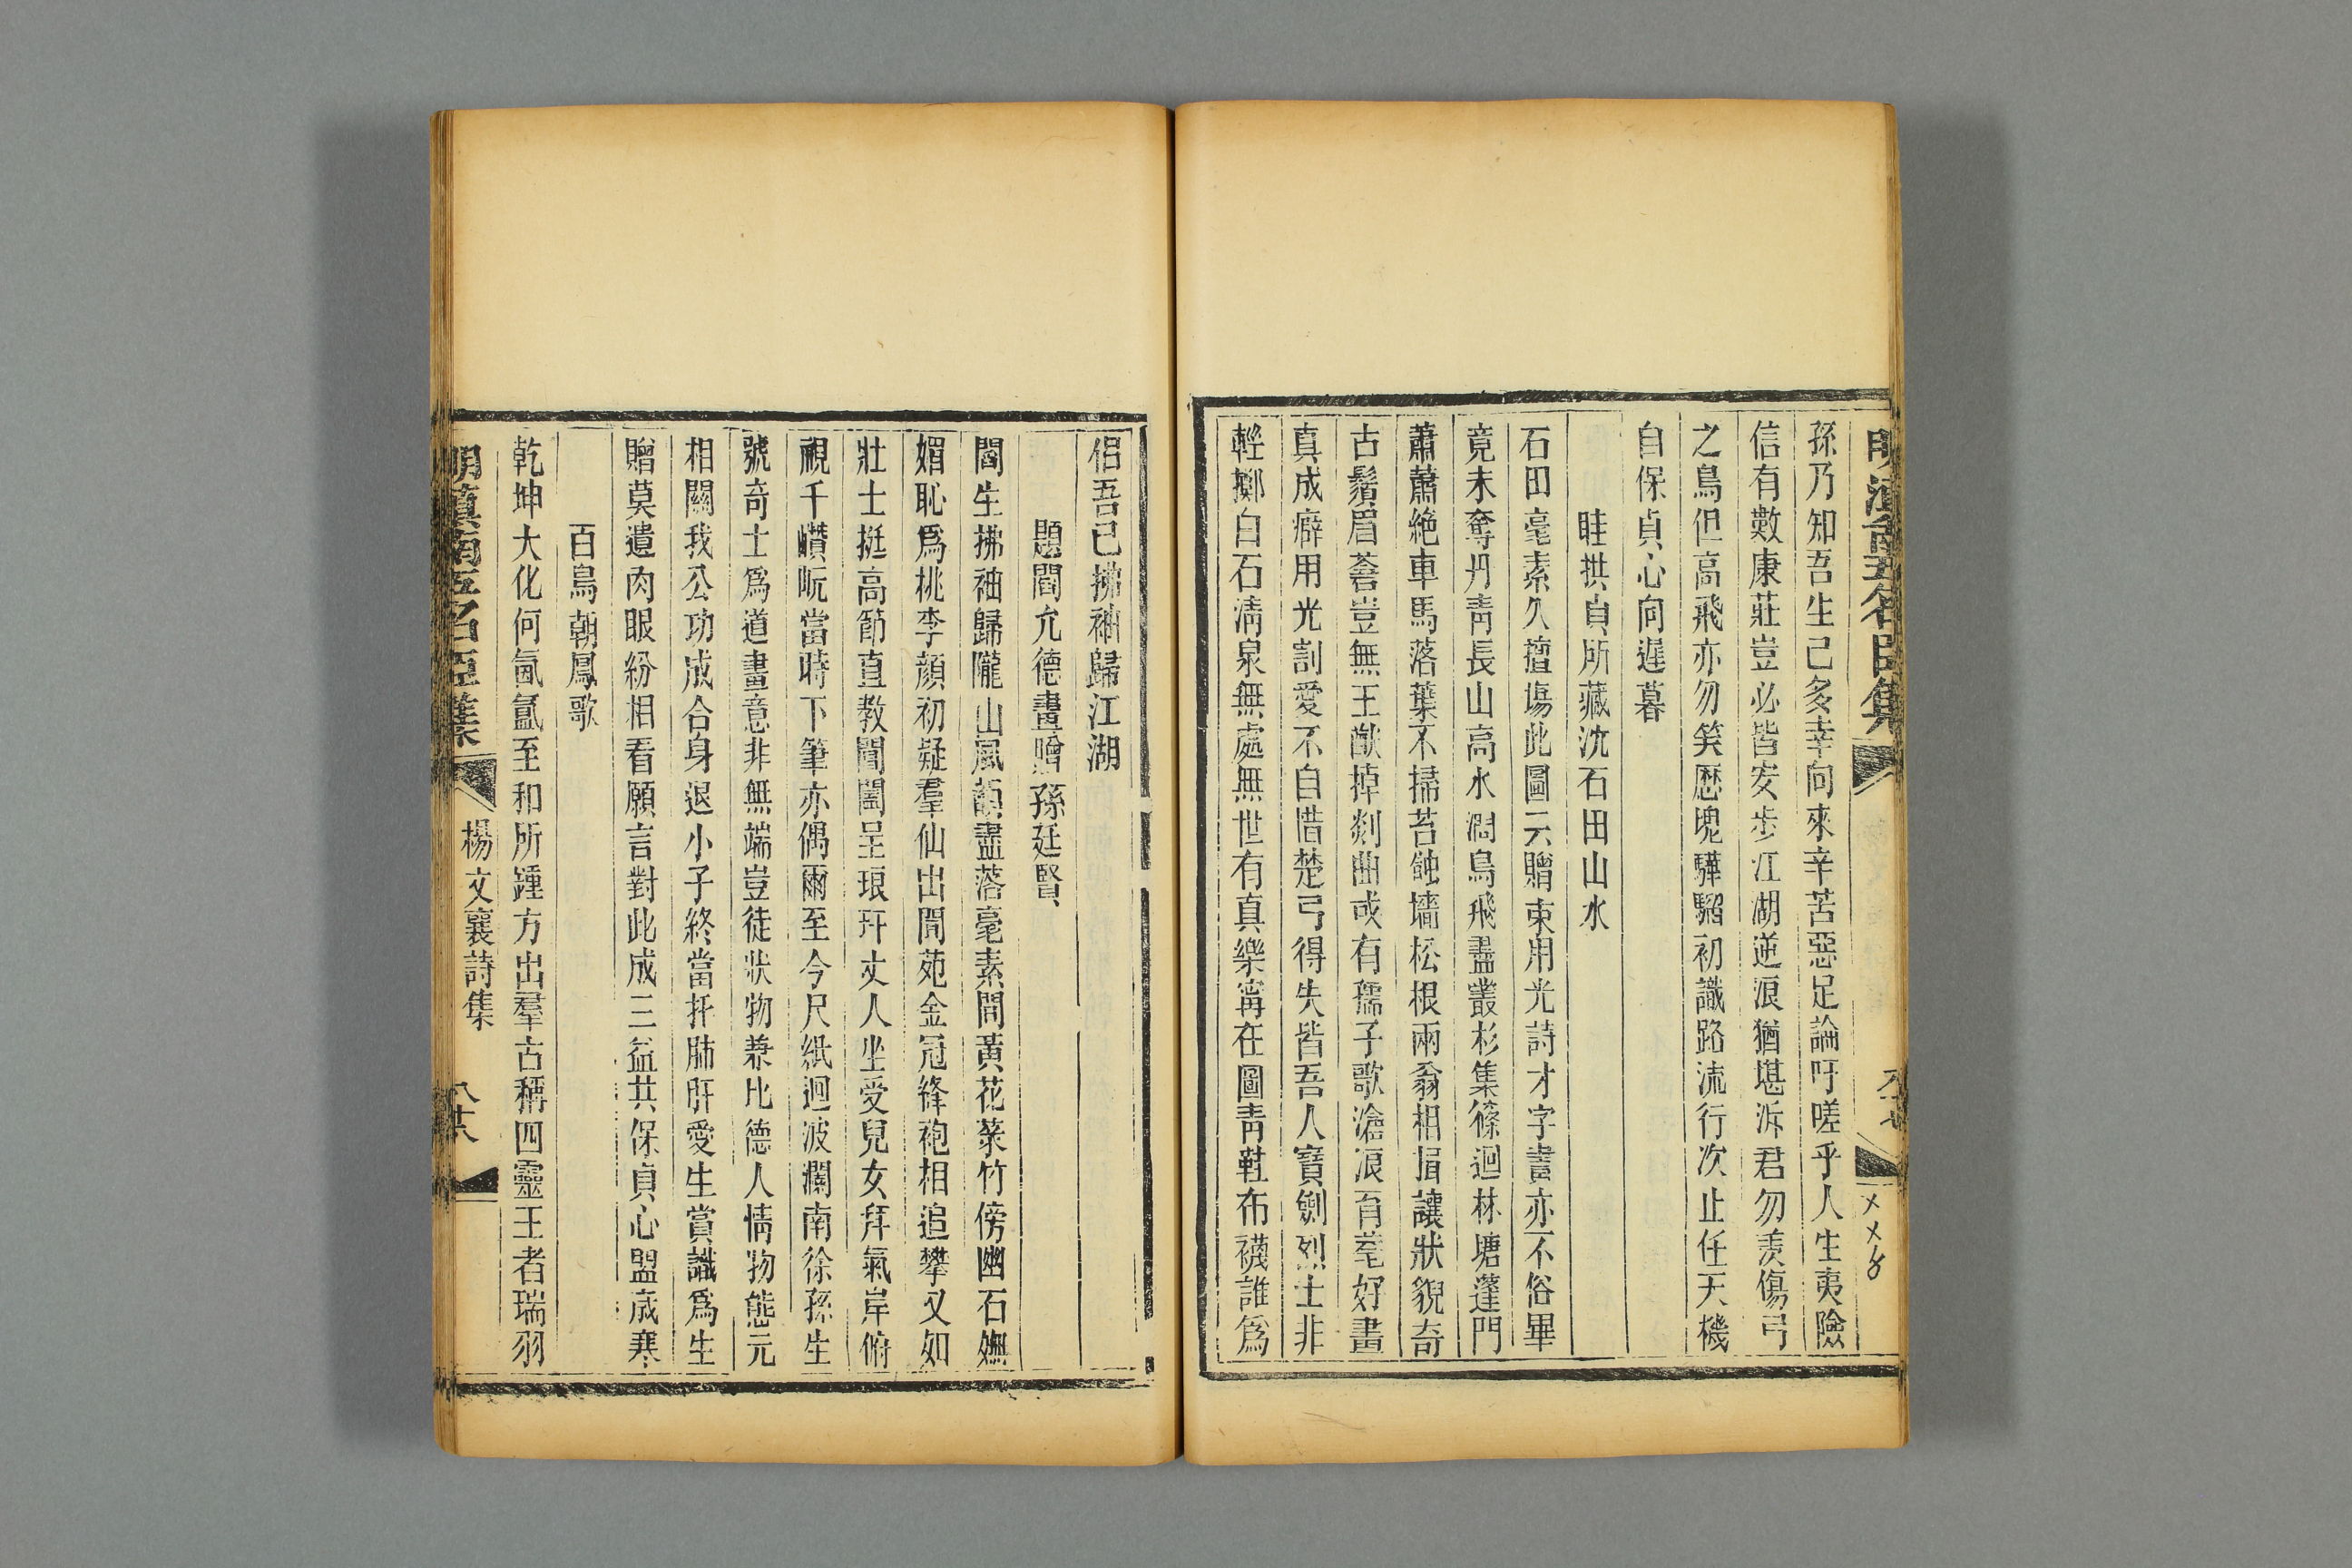 孫乃知吾生已多幸向來辛苦惡足論吁嗟乎人生夷險
信有數康莊豈必皆安步江湖逆浪猶堪泝君勿羨傷弓
之鳥但高飛亦勿笑歷塊驊騮初識路流行次止任天機
自保貞心向遲暮
眭拱貞所藏沈石田山水
石田毫素久擅塲此圖云贈束用光詩才字畫亦不俗畢
竟未奪丹青長山高水濶鳥飛盡叢杉集篠迴林塘蓬門
蕭蕭絶車馬落葉不掃苔蝕墻松根兩翁相揖讓狀貌奇
古鬚眉蒼豈無王猷掉剡曲或有孺子歌滄浪百耄好畫
真成癖用光割愛不自惜楚弓得失皆吾人寶劍烈士非
輕擲白石淸泉無處無世有真樂寗在圖靑鞋布襪誰爲
侶吾已拂袖歸江湖
題閻允德畫贈孫廷賢
閻生拂袖歸隴山風韻盡落毫素間黃花菉竹傍幽石嫵
媚恥爲桃李顔初疑羣仙出閬苑金冠絳袍相追攀又如
壯士挺高節直教閶闔呈琅玕丈人坐受兒女拜氣岸俯
視千巑岏當時下筆亦偶爾至今尺紙迴波瀾南徐孫生
號奇士爲道畫意非無端豈徒狀物兼比德人情物態元
相關我公功成合身退小子終當扞肺肝愛生賞識爲生
贈莫遣肉眼紛相看願言對此成三益共保貞心盟歳寒
百鳥朝鳳歌
乾坤大化何氤氳至和所鍾方出羣古稱四靈王者瑞羽
明滇南五名臣集
楊文襄詩集
八廿八